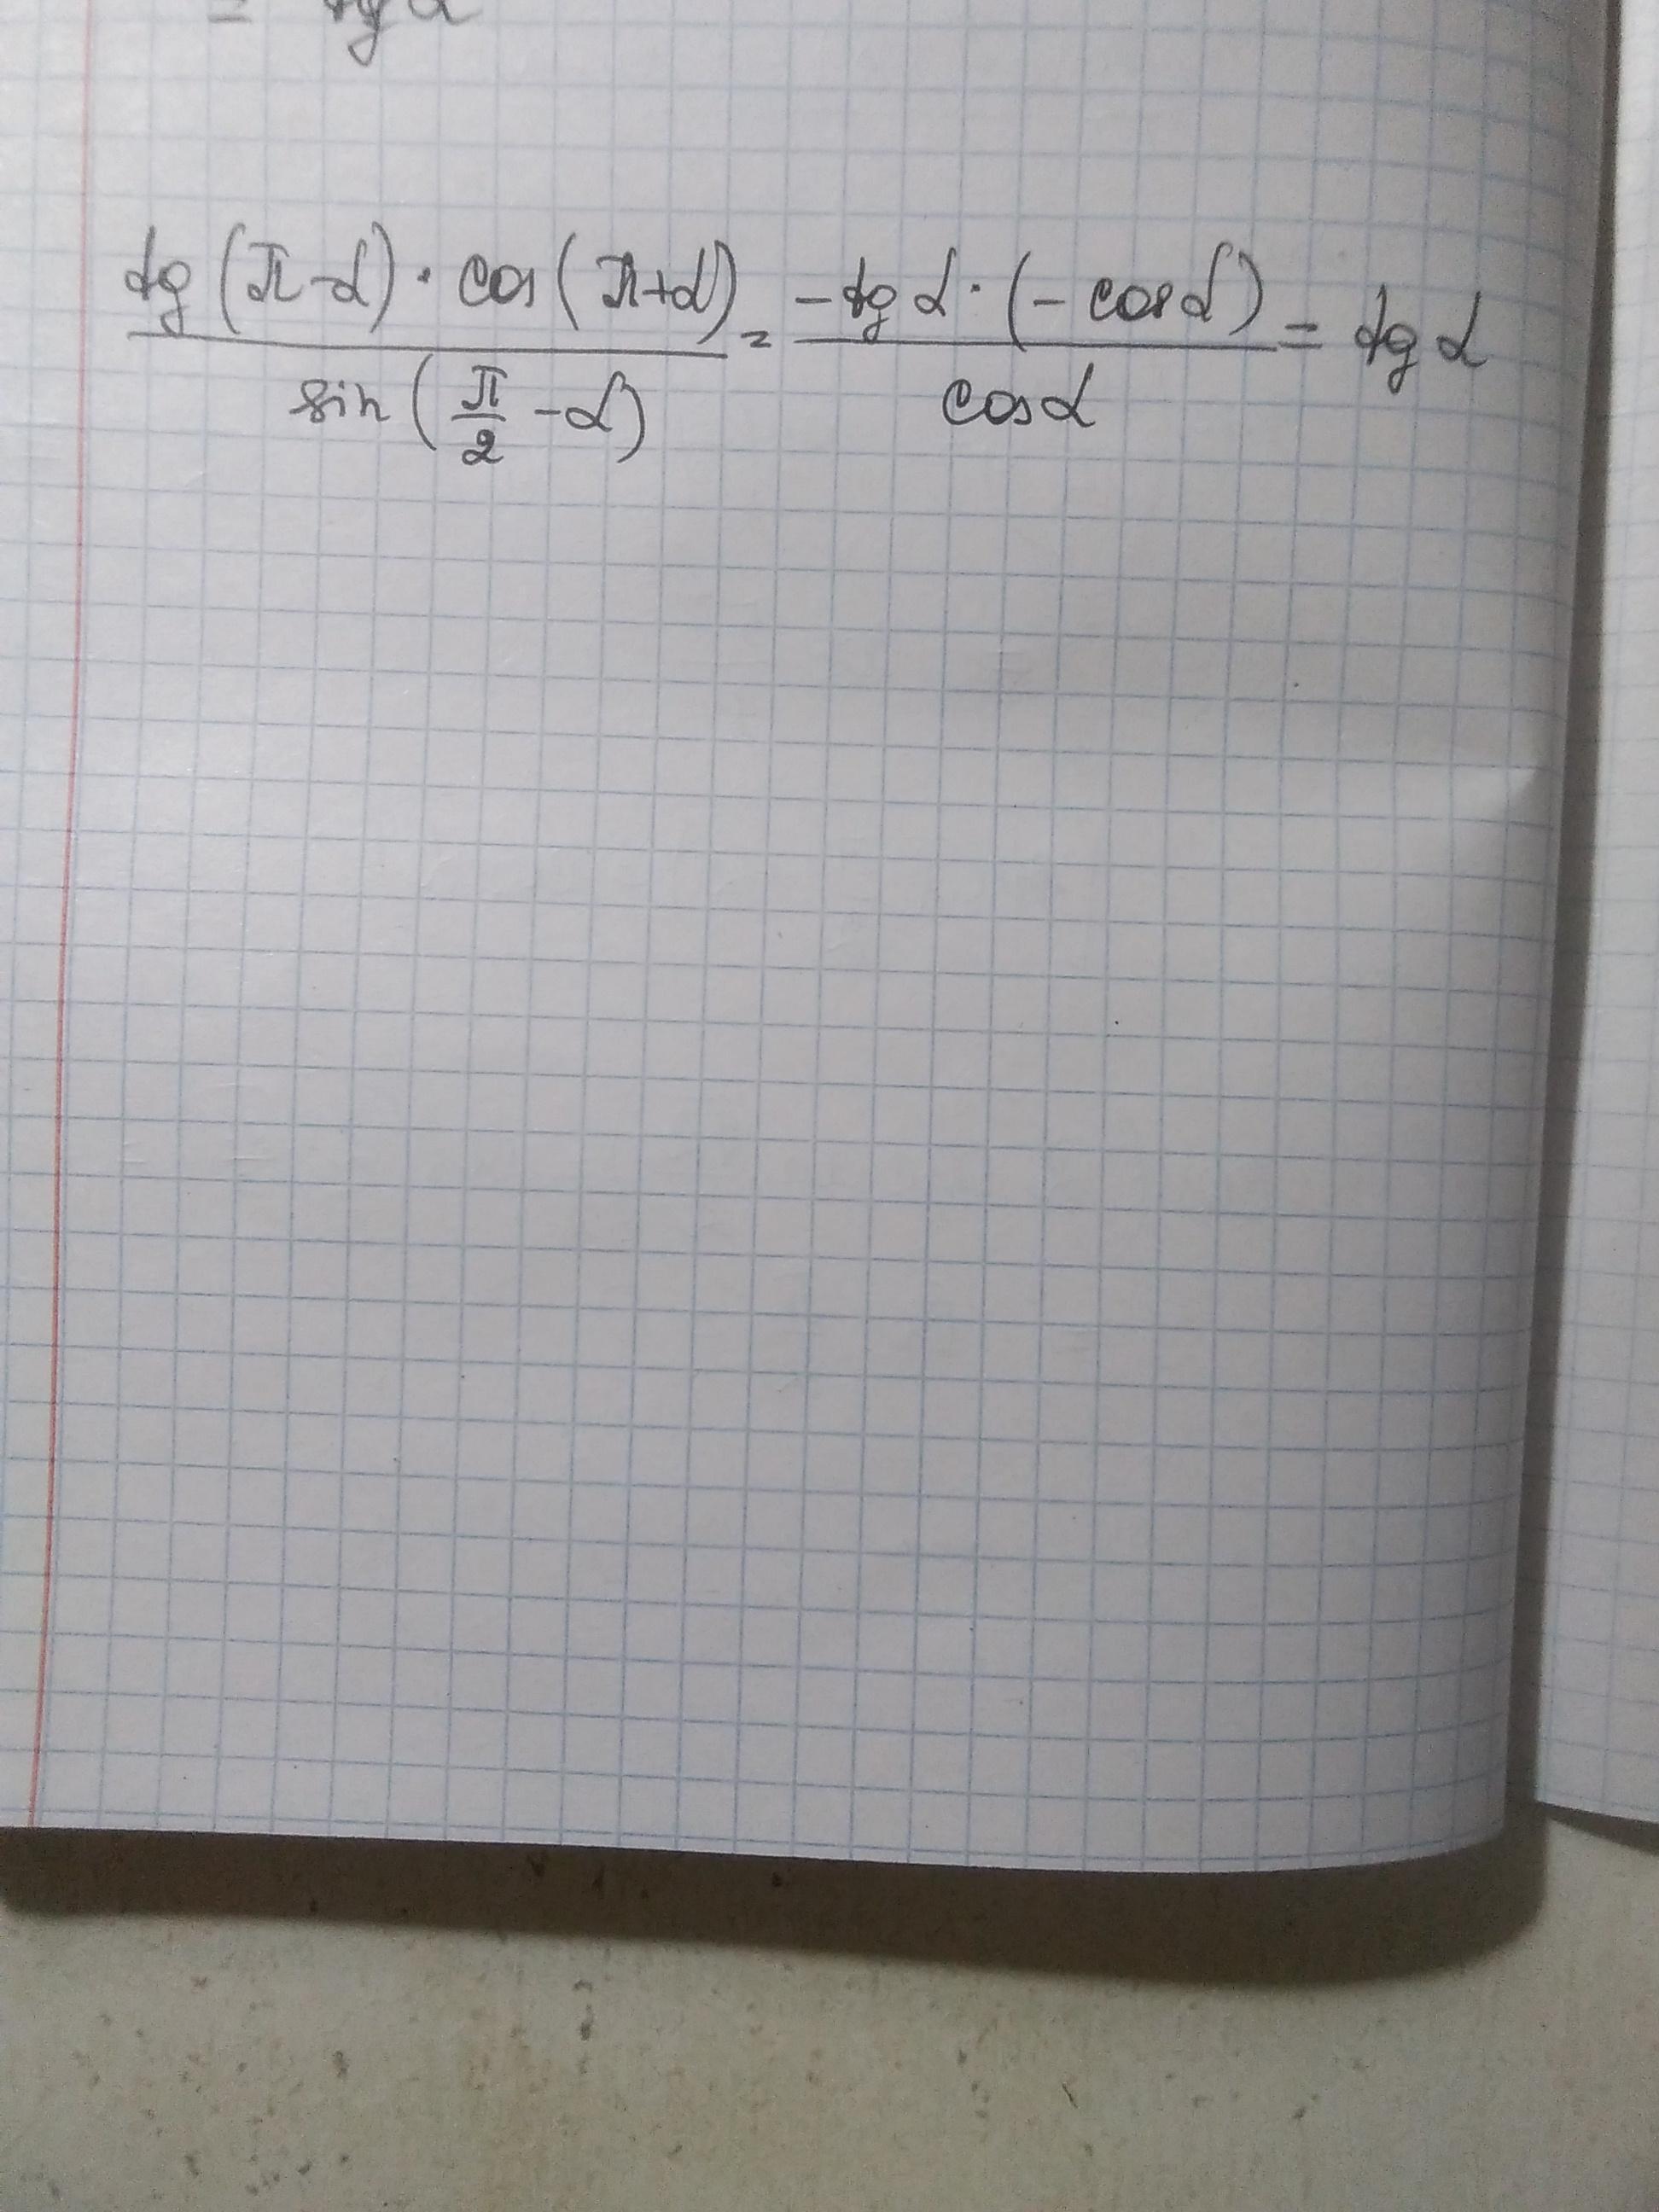 = tg α
tg(π-α)·cos(π+α) / sin(π/2 -α) = -tg α·(-cos α) / cos α = tg α